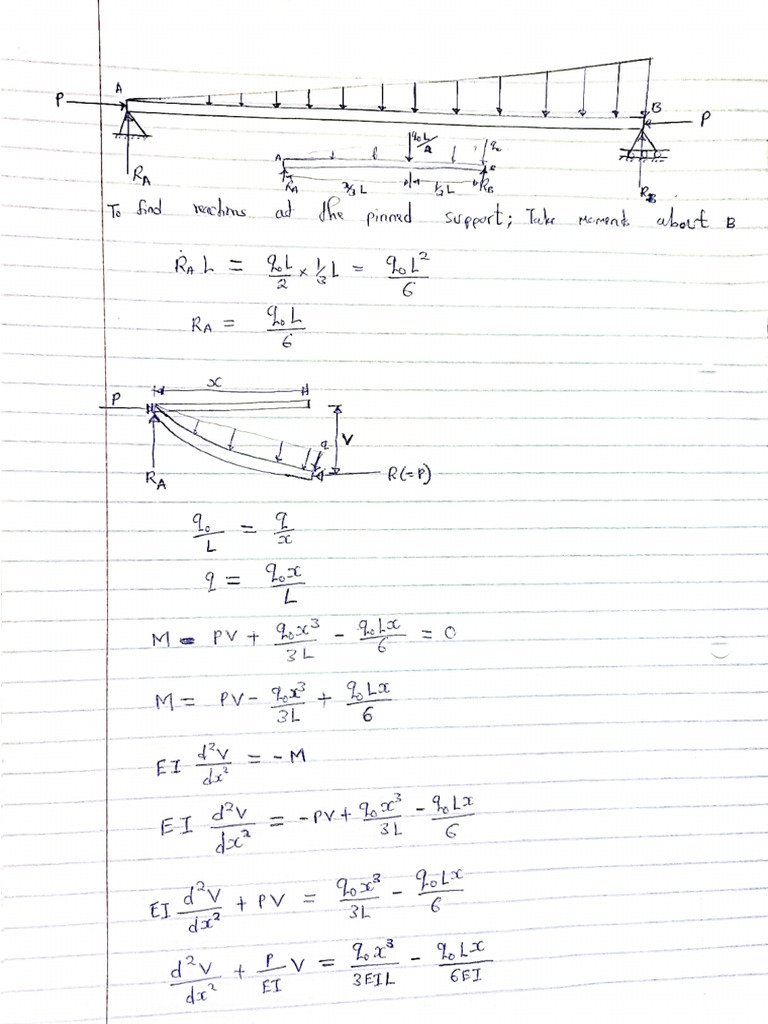 A
P
B
P
q₀L/2
q₀
A
B
R_A
R_A
2/3 L
1/3 L
R_B
R_B
To find reactions at the pinned support; Take moment about B
R_A L = q₀L/2 × 1/3 L = q₀L²/6
R_A = q₀L/6
x
P
V
q
R_A
R(=P)
q₀/L = q/x
q = q₀x/L
M - PV + q₀x³/3L - q₀Lx/6 = 0
M = PV - q₀x³/3L + q₀Lx/6
EI d²V/dx² = -M
EI d²V/dx² = -PV + q₀x³/3L - q₀Lx/6
EI d²V/dx² + PV = q₀x³/3L - q₀Lx/6
d²V/dx² + P/EI V = q₀x³/3EIL - q₀Lx/6EI